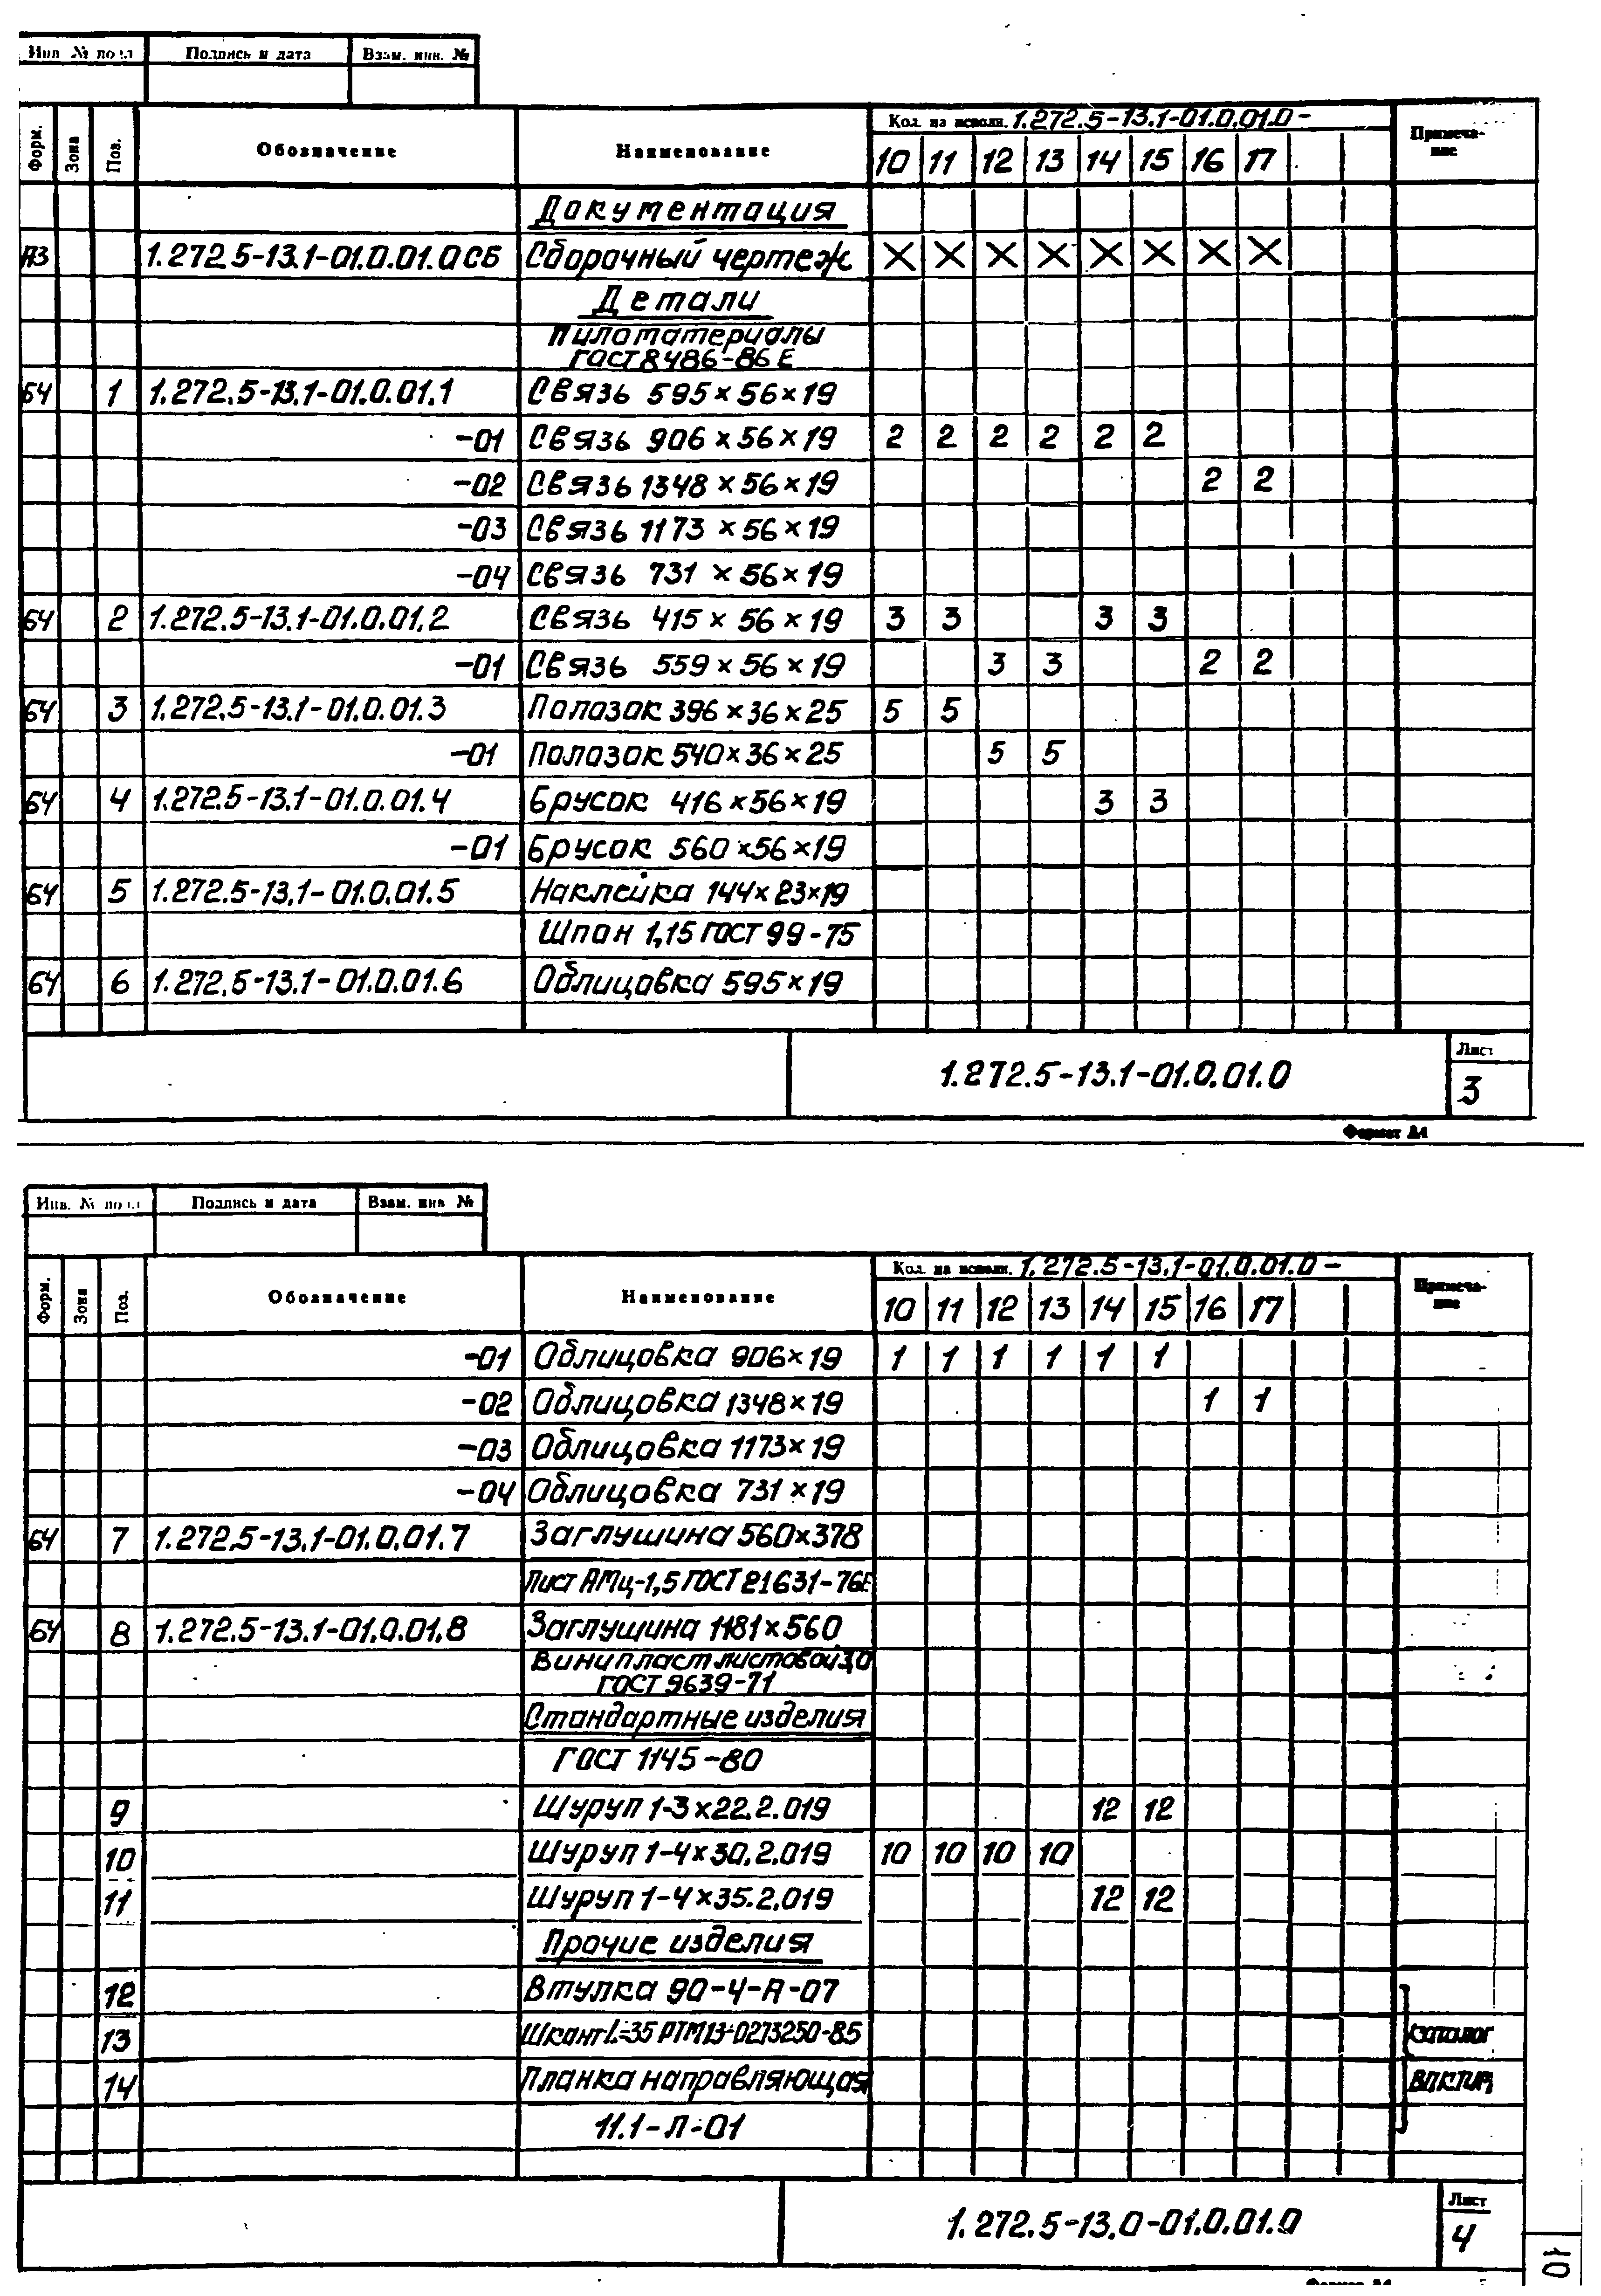 Инв. № подл Подпись и дата Взам. инв. №
Форм. Зона Поз. Обозначение Наименование Кол. на исполн. 1.272.5-13.1-01.0.01.0- Примеча-
ние
10 11 12 13 14 15 16 17
Документация
А3 1.272.5-13.1-01.0.01.0СБ Сборочный чертеж X X X X X X X X
Детали
Пиломатериалы
ГОСТ 8486-86Е
БЧ 1 1.272.5-13.1-01.0.01.1 Связь 595×56×19
-01 Связь 906×56×19 2 2 2 2 2 2
-02 Связь 1348×56×19 2 2
-03 Связь 1173×56×19
-04 Связь 731×56×19
БЧ 2 1.272.5-13.1-01.0.01.2 Связь 415×56×19 3 3 3 3
-01 Связь 559×56×19 3 3 2 2
БЧ 3 1.272.5-13.1-01.0.01.3 Полозок 396×36×25 5 5
-01 Полозок 540×36×25 5 5
БЧ 4 1.272.5-13.1-01.0.01.4 Брусок 416×56×19 3 3
-01 Брусок 560×56×19
БЧ 5 1.272.5-13.1-01.0.01.5 Наклейка 144×23×19
Шпон 1,15 ГОСТ 99-75
БЧ 6 1.272.5-13.1-01.0.01.6 Облицовка 595×19
1.272.5-13.1-01.0.01.0 Лист
3
Формат А4
Инв. № подл Подпись и дата Взам. инв №
Форм. Зона Поз. Обозначение Наименование Кол. на исполн. 1.272.5-13.1-01.0.01.0- Примеча-
ние
10 11 12 13 14 15 16 17
-01 Облицовка 906×19 1 1 1 1 1 1
-02 Облицовка 1348×19 1 1
-03 Облицовка 1173×19
-04 Облицовка 731×19
БЧ 7 1.272.5-13.1-01.0.01.7 Заглушина 560×378
Лист АМц-1,5 ГОСТ 21631-76Е
БЧ 8 1.272.5-13.1-01.0.01.8 Заглушина 1181×560
Винипласт листовой 3,0
ГОСТ 9639-71
Стандартные изделия
ГОСТ 1145-80
9 Шуруп 1-3×22.2.019 12 12
10 Шуруп 1-4×30.2.019 10 10 10 10
11 Шуруп 1-4×35.2.019 12 12
Прочие изделия
12 Втулка 90-4-А-07
13 Шкант L=35 РТМ13-0273250-85 Каталог
14 Планка направляющая ВПКТИМ
11.1-Л-01
1.272.5-13.0-01.0.01.0 Лист
4
10
Формат А4